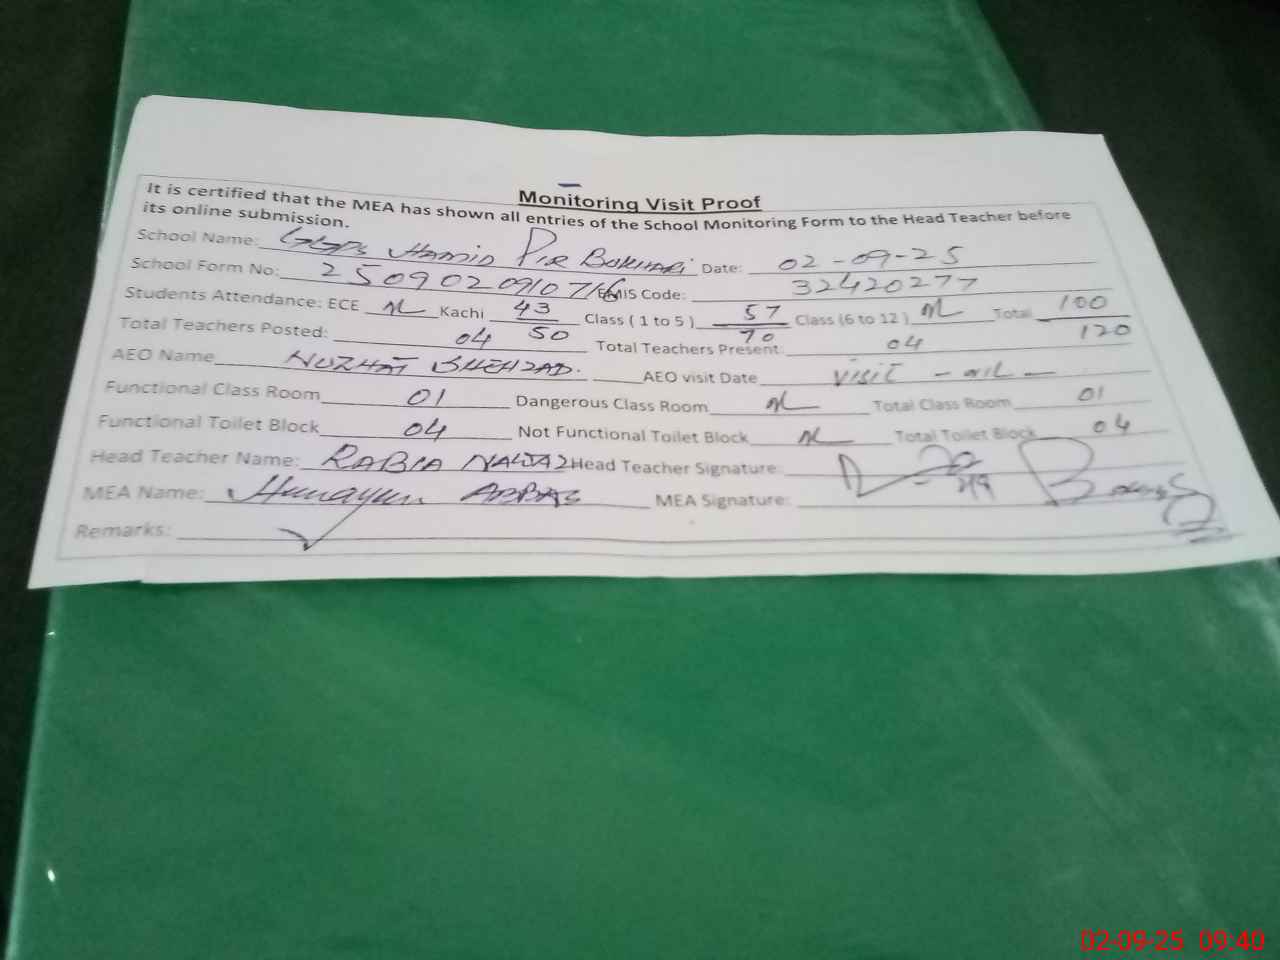 Monitoring Visit Proof
It is certified that the MEA has shown all entries of the School Monitoring Form to the Head Teacher before
its online submission.
School Name: GGPS Hamid Pir Bokhari Date: 02-09-25
School Form No: 2509020910716 EMIS Code: 32420277
Students Attendance: ECE NL Kachi 43/50 Class ( 1 to 5 ) 57/70 Class (6 to 12 ) NL Total 100/120
Total Teachers Posted: 04 Total Teachers Present: 04
AEO Name NUZHAT BHEHZAD. AEO visit Date visit - nil -
Functional Class Room 01 Dangerous Class Room NL Total Class Room 01
Functional Toilet Block 04 Not Functional Toilet Block NL Total Toilet Block 04
Head Teacher Name: RABIA NAWAZ Head Teacher Signature:
MEA Name: Humayun ABBAS MEA Signature:
Remarks:
02-09-25 09:40